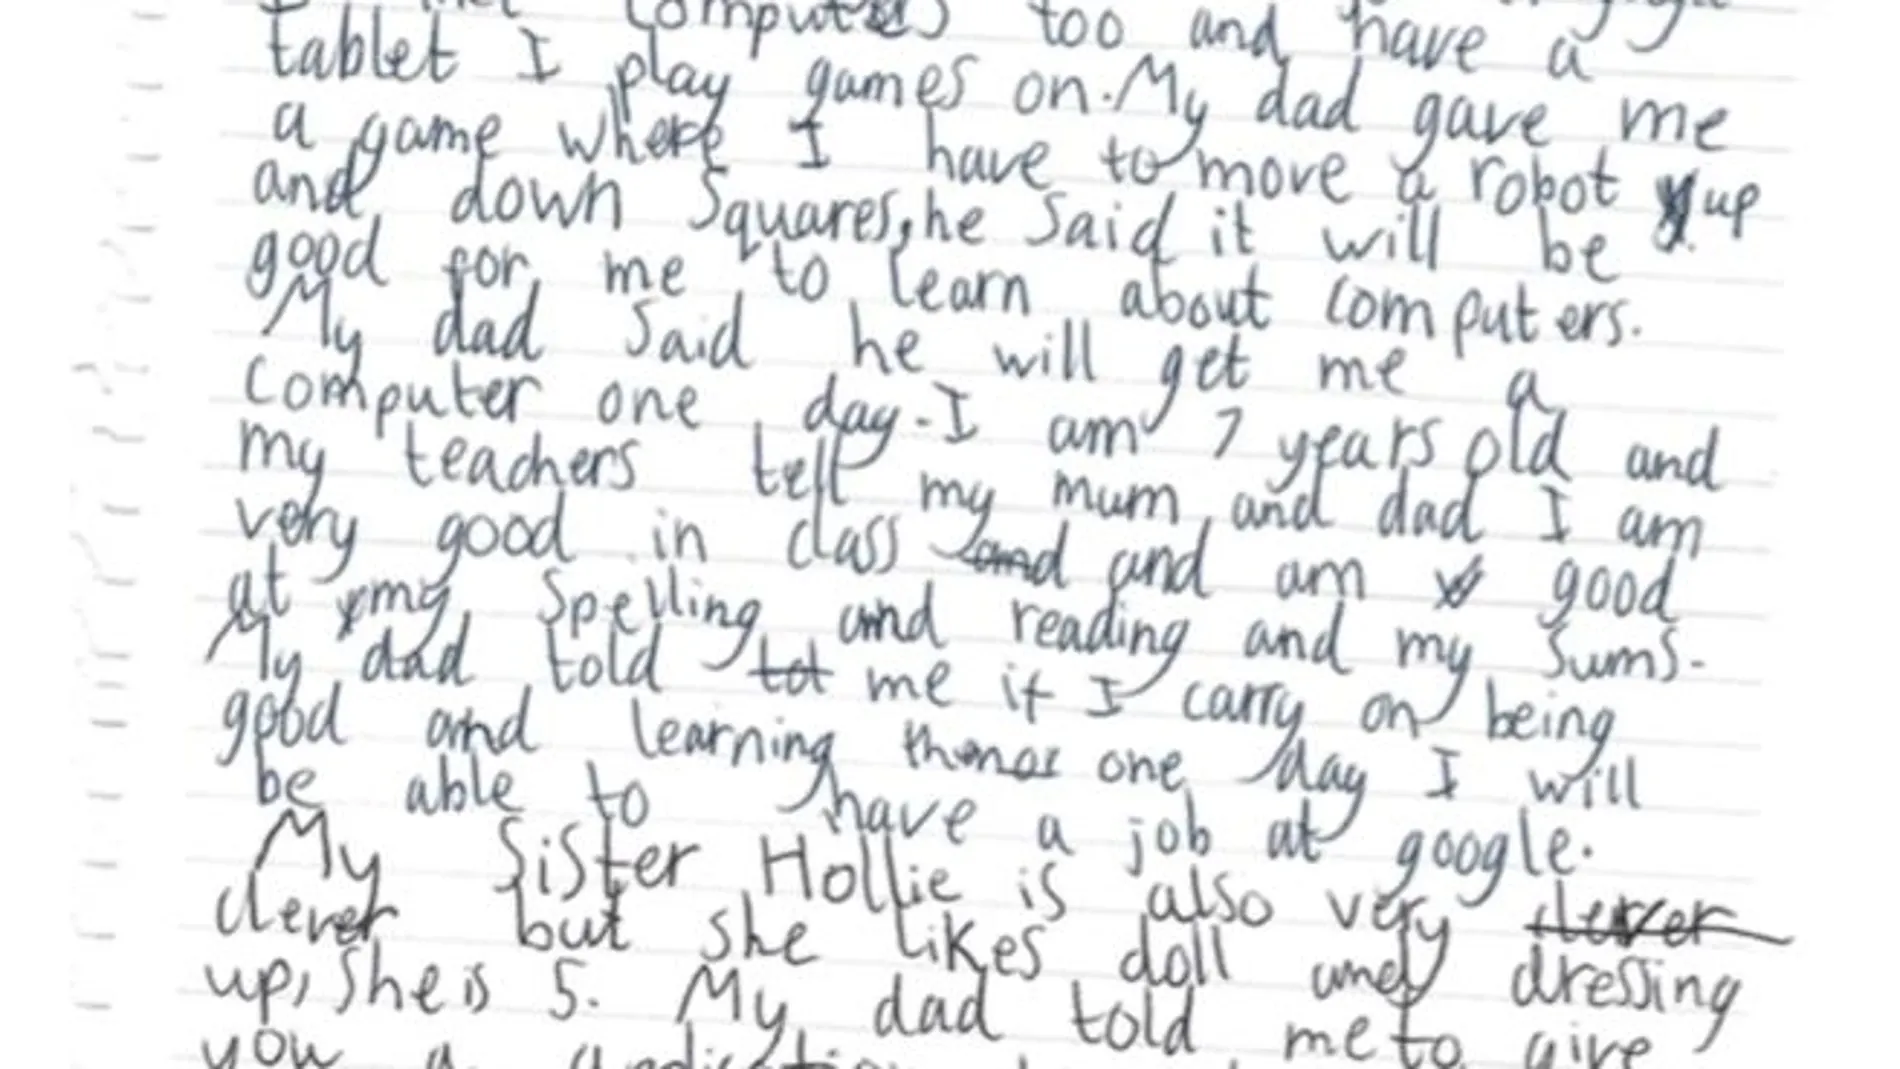 computers too and have a
tablet I play games on. My dad gave me
a game where I have to move a robot up
and down squares, he said it will be
good for me to learn about computers.
My dad said he will get me a
computer one day. I am 7 years old and
my teachers tell my mum and dad I am
very good in class and and am good
at my spelling and reading and my sums.
My dad told tot me if I carry on being
good and learning one day I will
be able to have a job at google.
My sister Hollie is also very clever
clever but she likes doll and dressing
up, she is 5. My dad told me to give
you a